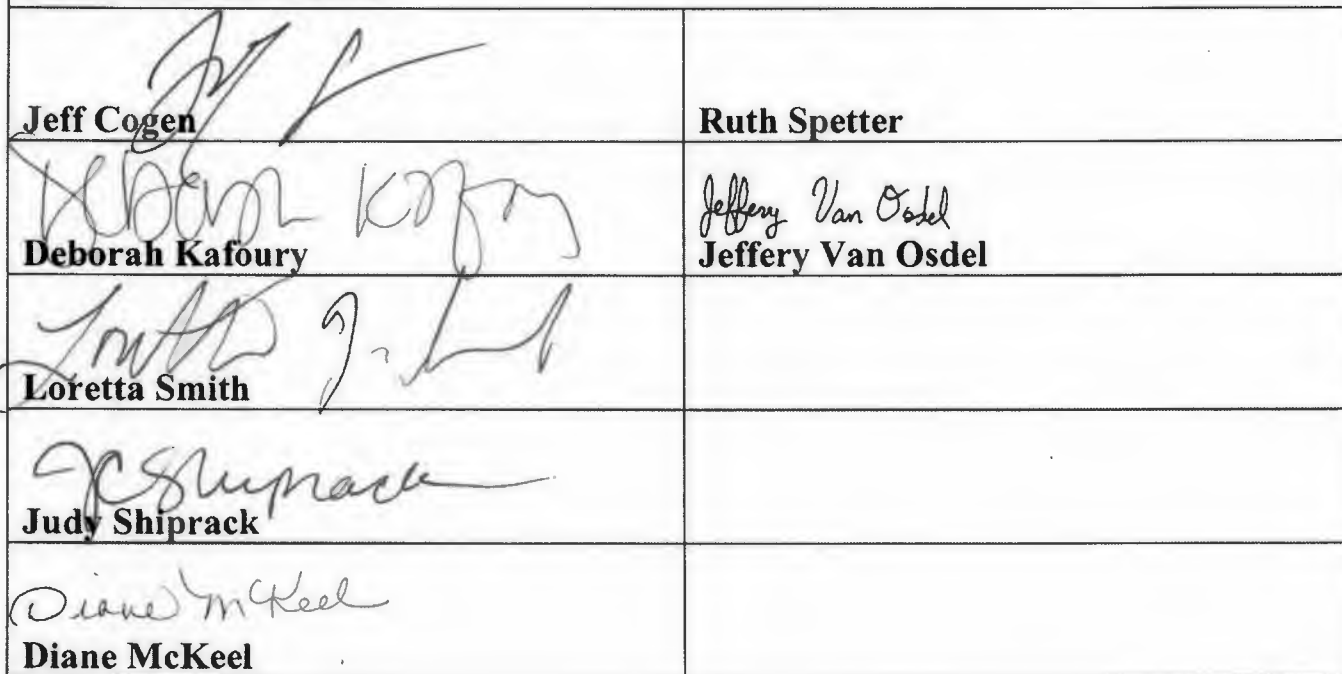 Jeff Cogen
Ruth Spetter
Deborah Kafoury
Jeffery Van Osdel
Jeffery Van Osdel
Loretta Smith
JCShiprack
Judy Shiprack
Diane McKeel
Diane McKeel